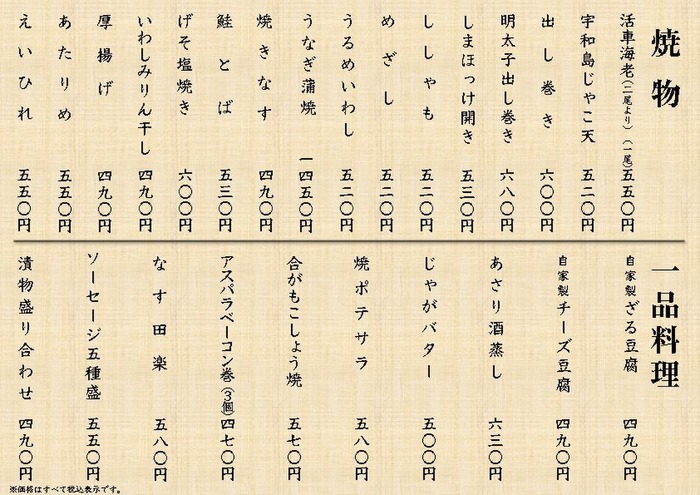 焼物
活車海老(二尾より)(一尾)五五〇円
宇和島じゃこ天 五二〇円
出し巻き 六〇〇円
明太子出し巻き 六八〇円
しまほっけ開き 五三〇円
ししゃも 五二〇円
めざし 五二〇円
うるめいわし 五二〇円
うなぎ蒲焼 一四五〇円
焼きなす 四九〇円
鮭とば 五三〇円
げそ塩焼き 六〇〇円
いわしみりん干し 四九〇円
厚揚げ 四九〇円
あたりめ 五五〇円
えいひれ 五五〇円
一品料理
自家製ざる豆腐 四九〇円
自家製チーズ豆腐 四九〇円
あさり酒蒸し 六三〇円
じゃがバター 五〇〇円
焼ポテサラ 五八〇円
合がもこしょう焼 五七〇円
アスパラベーコン巻(3個)四七〇円
なす田楽 五八〇円
ソーセージ五種盛 五五〇円
漬物盛り合わせ 四九〇円
※価格はすべて税込表示です。